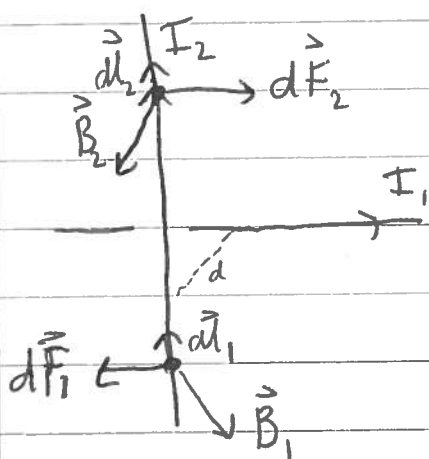 I₂
dl⃗₂
dF⃗₂
B⃗₂
I₁
d
dl⃗₁
dF⃗₁
B⃗₁